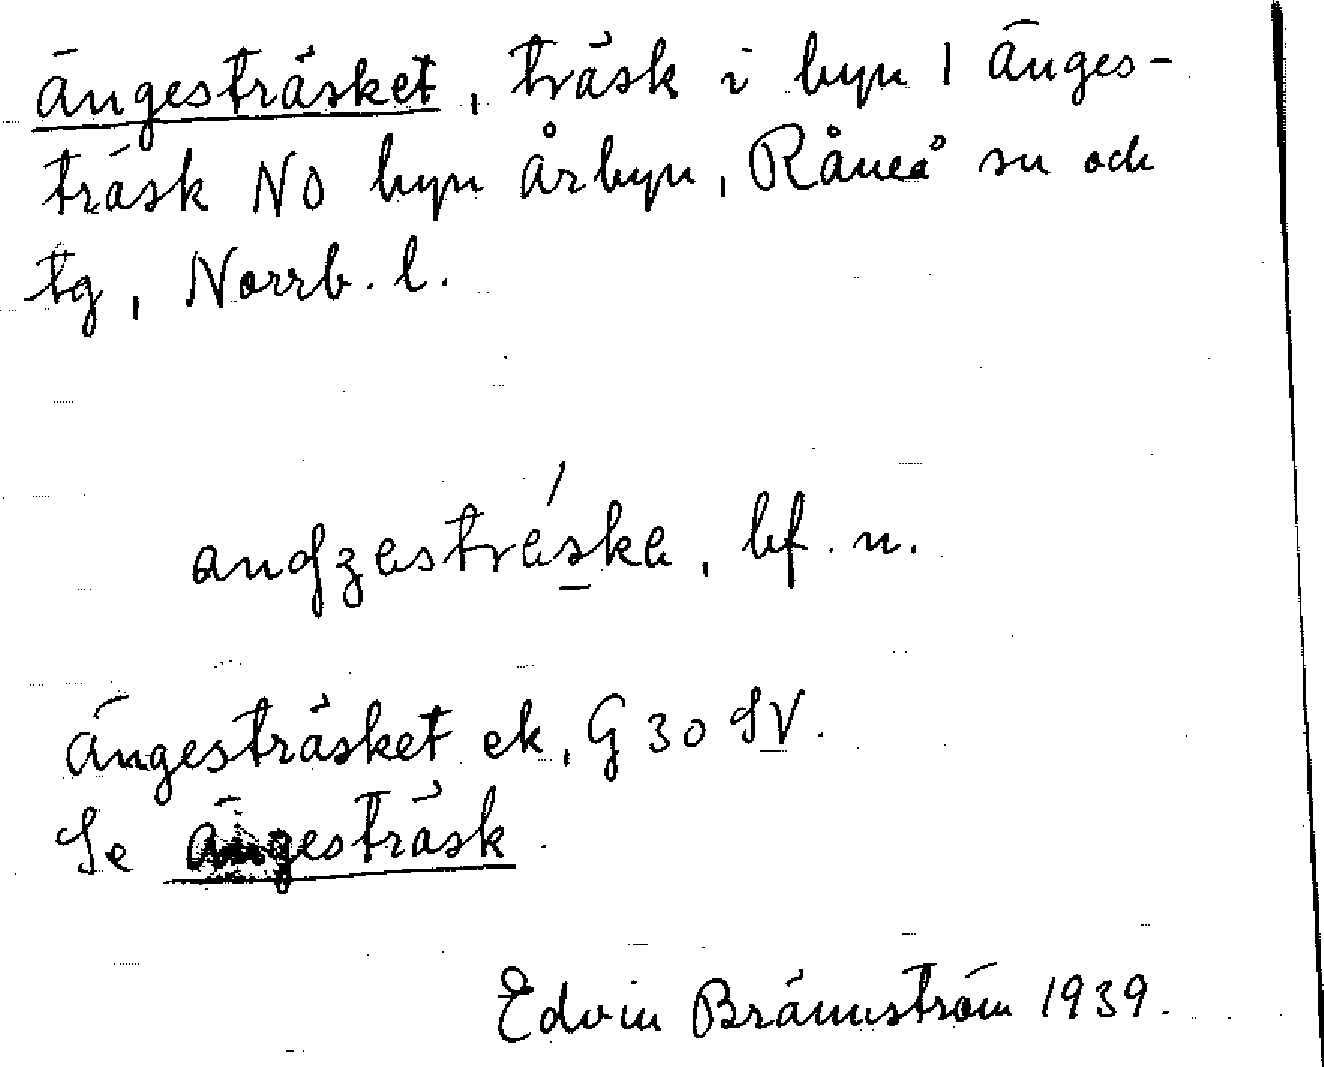 Ängesträsket, träsk i byn 1 Änges-
träsk NO byn Årbyn, Råneå sn och
tg, Norrb. l.
andzestráska, bf. n.
Ängesträsket ek, G 30 SV.
Se Ängesträsk.
Edvin Brännström 1939.